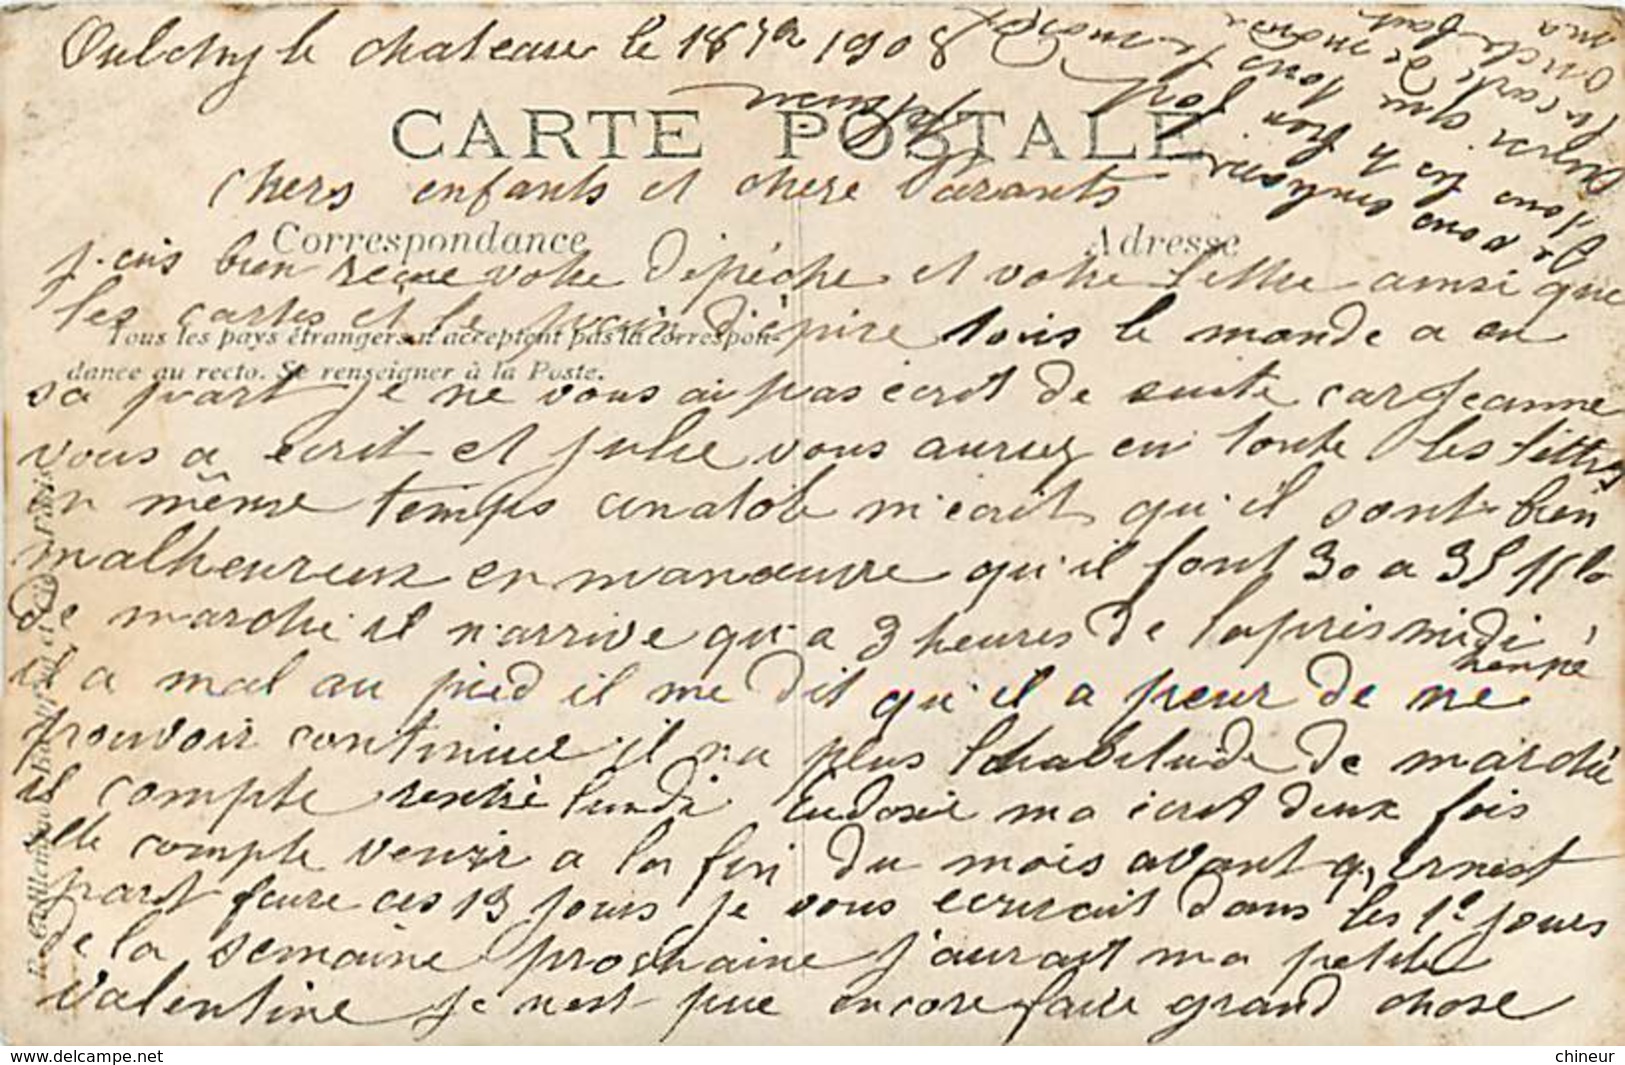 Oulchy le chateau le 18 7bre 1908
CARTE POSTALE
Chers enfants et chere Parants
Correspondance
Adresse
j. ais bien recue votre dépéche et votre lettre ainsi que
les cartes et le pain d'épire tous le monde a eu
Tous les pays étrangers n'acceptent pas la correspon-
dance au recto. Se renseigner à la Poste.
sa part je ne vous ai pas écrit de suite car Jeanne
vous a ecrit et julie vous auriez eu toute les lettres
en même temps anatole m'ecrit qu'il sont bien
malheureux en manœuvre qu'il font 30 a 35 Kilo
de marche il n'arrive qu'a 3 heures de laprismidi
il a mal au pied il me dit qu'il a peur de ne
pouvoir continuee il na plus l'habitude de marché
il compte rentré lundi Eudoxie ma icrit deux fois
elle compte venir a la fin du mois avant q. Ernest
part faire ces 13 jours je vous ecrirait dans les 1e jours
de la semaine prochaine j'aurait ma petite
Valentine je nest pue encore faire grand chose
www.delcampe.net
chineur